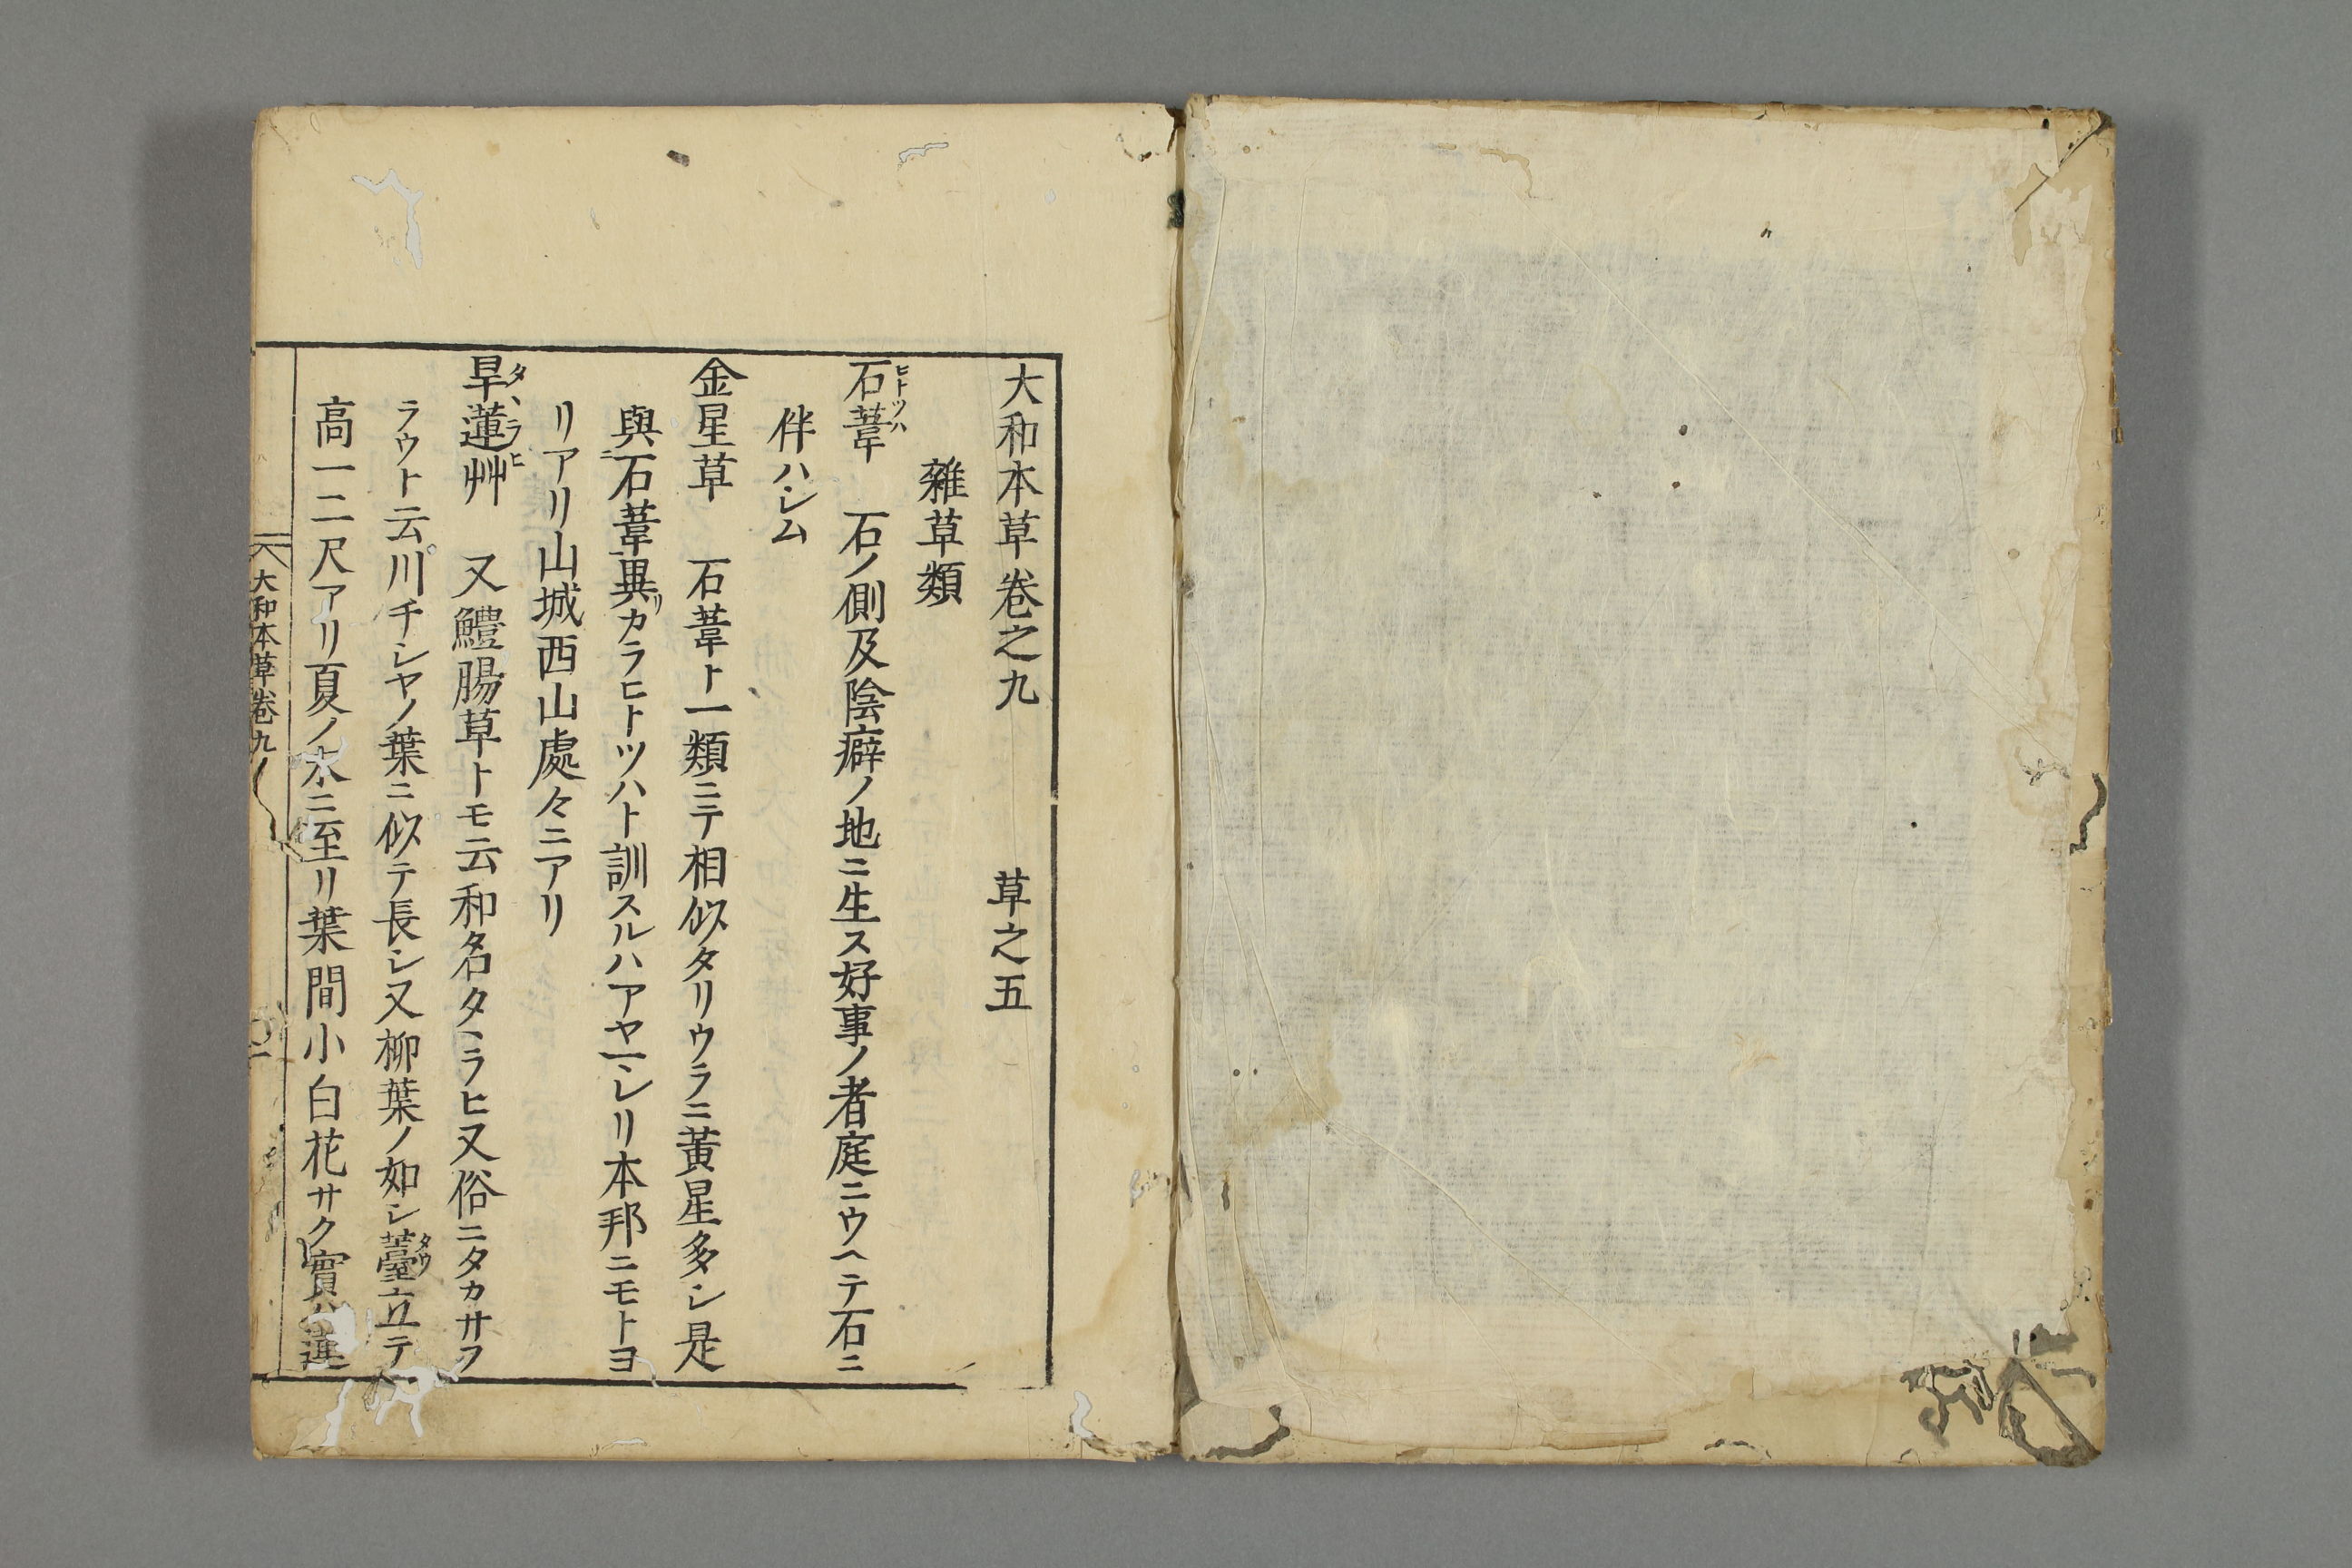 大和本草卷之九　草之五
雜草類
石葦　石ノ側及陰癖ノ地ニ生ス好事ノ者庭ニウヘテ石ニ
ヒトツハ
伴ハシム
金星草　石葦ト一類ニテ相似タリウラニ黃星多シ是
與石葦異リカラヒトツハト訓スルハアヤマレリ本邦ニモトヨ
リアリ山城西山處々ニアリ
旱蓮艸　又鱧腸草トモ云和名タヽラヒ又俗ニタカサフ
タヽラヒ
ラウト云川チシヤノ葉ニ似テ長シ又柳葉ノ如シ薹立テ
タウ
高一二尺アリ夏ノ末ニ至リ葉間小白花サク實ハ蓮
大和本草卷九